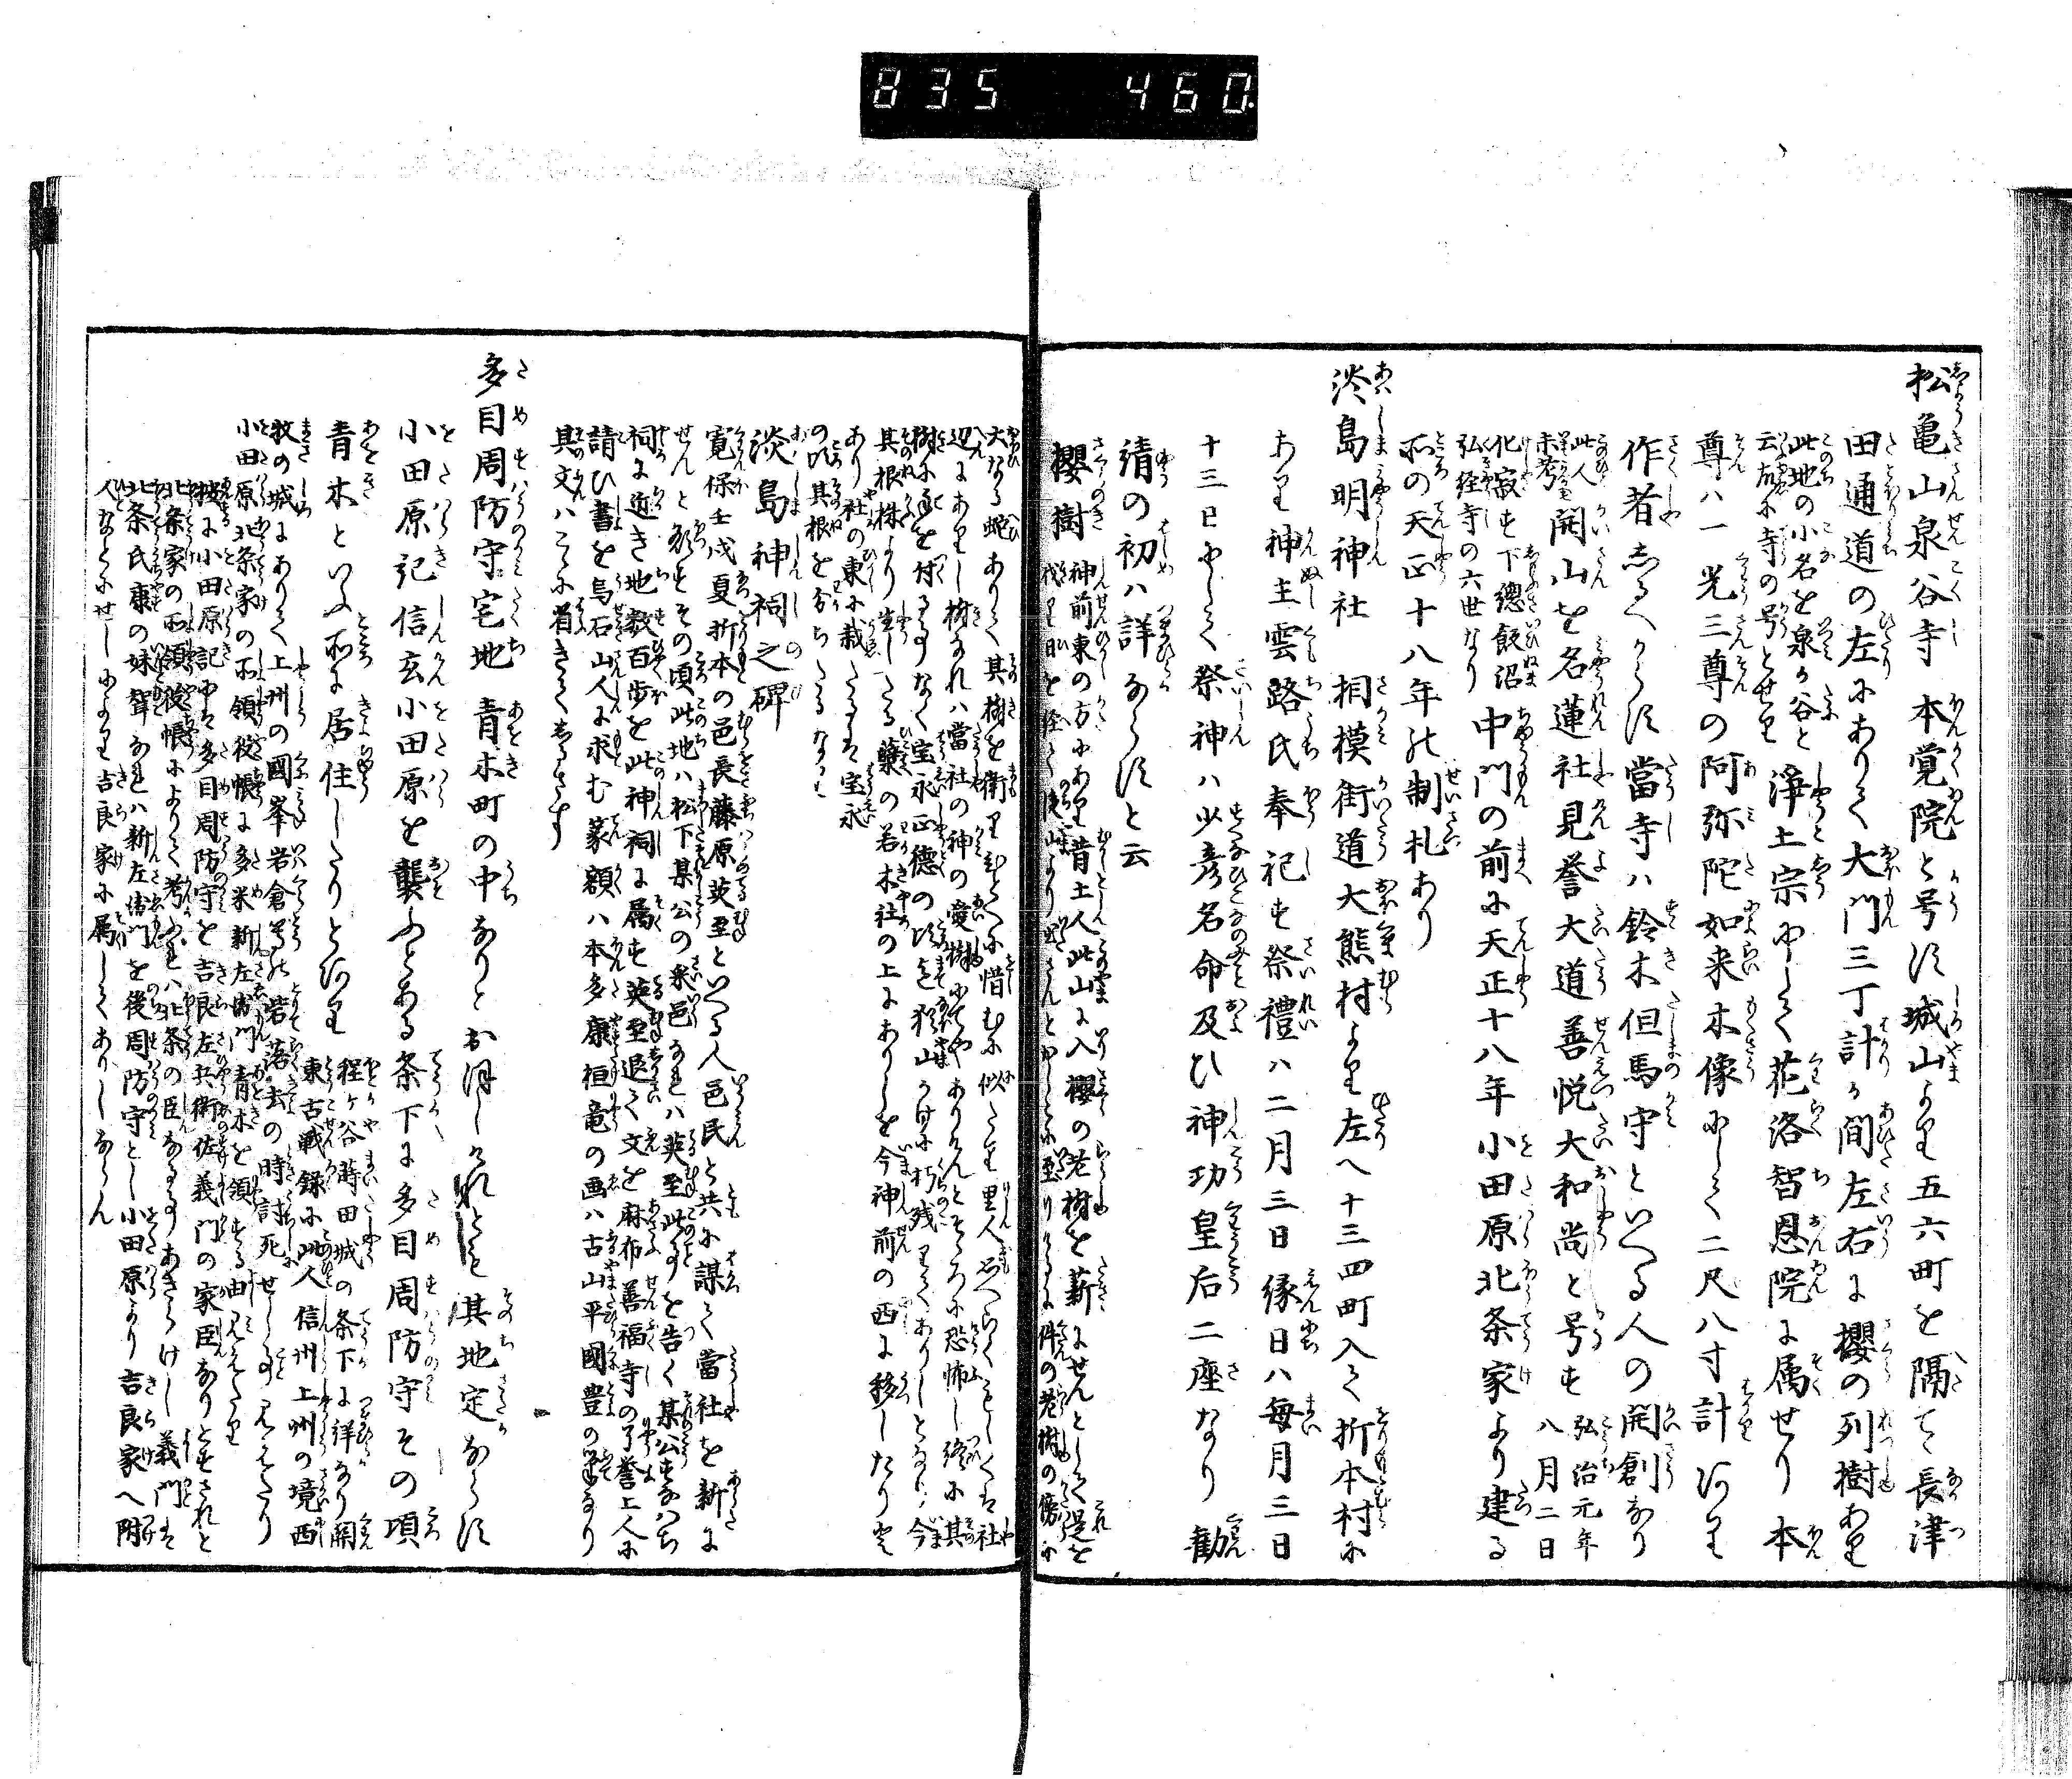 835 460
松亀山泉谷寺 本覚院と号す城山より五六町を隔て長津
田通道の左にありて大門三丁計り間左右に櫻の列樹あり
此地の小名を泉が谷と云左に寺の号とせり 浄土宗にして花洛智恩院に属せり 本
尊ハ一光三尊の阿弥陀如来木像にして二尺八寸計あり
作者しるへからす當寺ハ鈴木但馬守といへる人の開創なり
此人未考 開山を名蓮社見誉大道善悦大和尚と号す 弘治元年八月二日
化寂す下總飯沼弘経寺の六世なり 中門の前に天正十八年小田原北条家より建る
所の天正十八年の制札あり
淡島明神社 相模街道大熊村より左へ十三四町入て折本村に
あり神主雲路氏奉祀す祭禮ハ二月三日縁日ハ毎月三日
十三日にして祭神ハ少彦名命及ひ神功皇后二座なり 勧
請の初ハ詳ならすと云
櫻樹 神前東の方にあり昔土人此山に入櫻の老樹を薪にせんとして是を
伐り日を経て後山より出さんとせしに至りける に件の老樹の傍に
大なる蛇ありて其樹を衛りひとへに惜むに似たり里人思へらくもしくは社
辺にありし樹なれハ當社の神の愛樹にてやありけんとそゝろに恐怖し終に其
樹に手を付る事なく宝永正徳の頃迄社山かけに朽残りてありしとなり今
其根株より生したる蘖の若木社の上にありしを今神前の西に移したり又
あり社の東に栽たるは宝永
の頃其根を分ちたるなり
淡島神祠之碑
寛保壬戌夏折本の邑長藤原英至といへる人邑民と共に謀て當社を新に
せんと欲すその頃此地ハ松下某公の采邑なれハ英至此事を告く某公すなハち
祠に近き地数百歩を此神祠に属す英至退て文を麻布善福寺の了誉上人に
請ひ書を烏石山人に求む篆額ハ本多康桓竜の画ハ古山平國豊の筆なり
其文ハこゝに省きてしるさす
多目周防守宅地 青木町の中なりとお伝しけれとも其地定ならす
小田原記信玄小田原を襲ふとある条下に多目周防守その頃
青木といふ所に居住したりとあり 程ヶ谷蒔田城の条下に詳なり関
東古戦録に此人信州上州の境西
牧の城にありて上州の國峯岩倉等の砦落去の時討死せし事見えたり
小田原北条家の所領役帳に多米新左衛門青木を領する由見えたり
按に小田原記には多目周防守を吉良左兵衛佐義門の家臣なりとすされと
北条家の所領役帳によりて考ふれハ北条の臣なる事あきらけし義門は
北条氏康の妹聟なれハ新左衛門を後周防守とし小田原より吉良家へ附
人なとにせしにより吉良家に属してありしならん